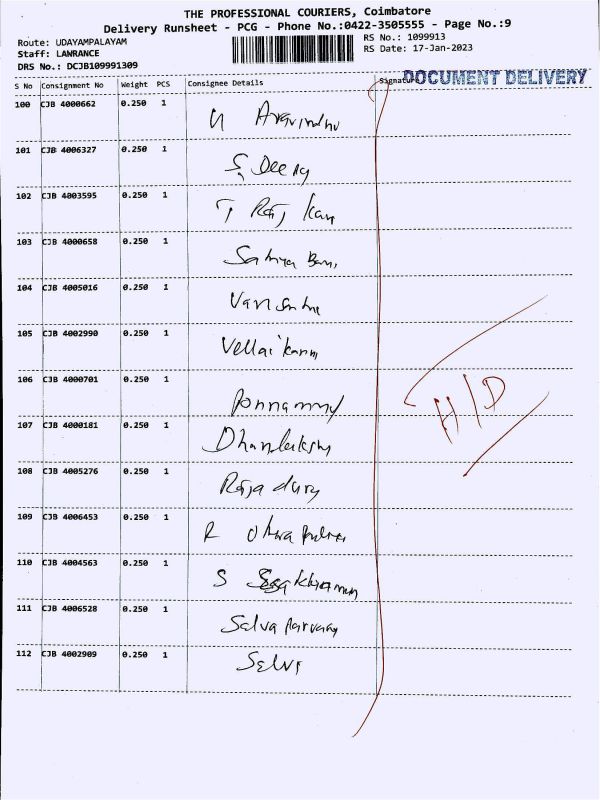 THE PROFESSIONAL COURIERS, Coimbatore
Delivery Runsheet - PCG - Phone No.:0422-3505555 - Page No.:9
Route: UDAYAMPALAYAM
RS No.: 1099913
Staff: LANRANCE
RS Date: 17-Jan-2023
DRS No.: DCJB109991309
S No Consignment No Weight PCS Consignee Details Signature DOCUMENT DELIVERY
100 CJB 4000662 0.250 1
101 CJB 4006327 0.250 1
102 CJB 4003595 0.250 1
103 CJB 4000658 0.250 1
104 CJB 4005016 0.250 1
105 CJB 4002990 0.250 1
106 CJB 4000701 0.250 1
H/D
107 CJB 4000181 0.250 1
108 CJB 4005276 0.250 1
109 CJB 4006453 0.250 1
110 CJB 4004563 0.250 1
111 CJB 4006528 0.250 1
112 CJB 4002909 0.250 1 Selvi